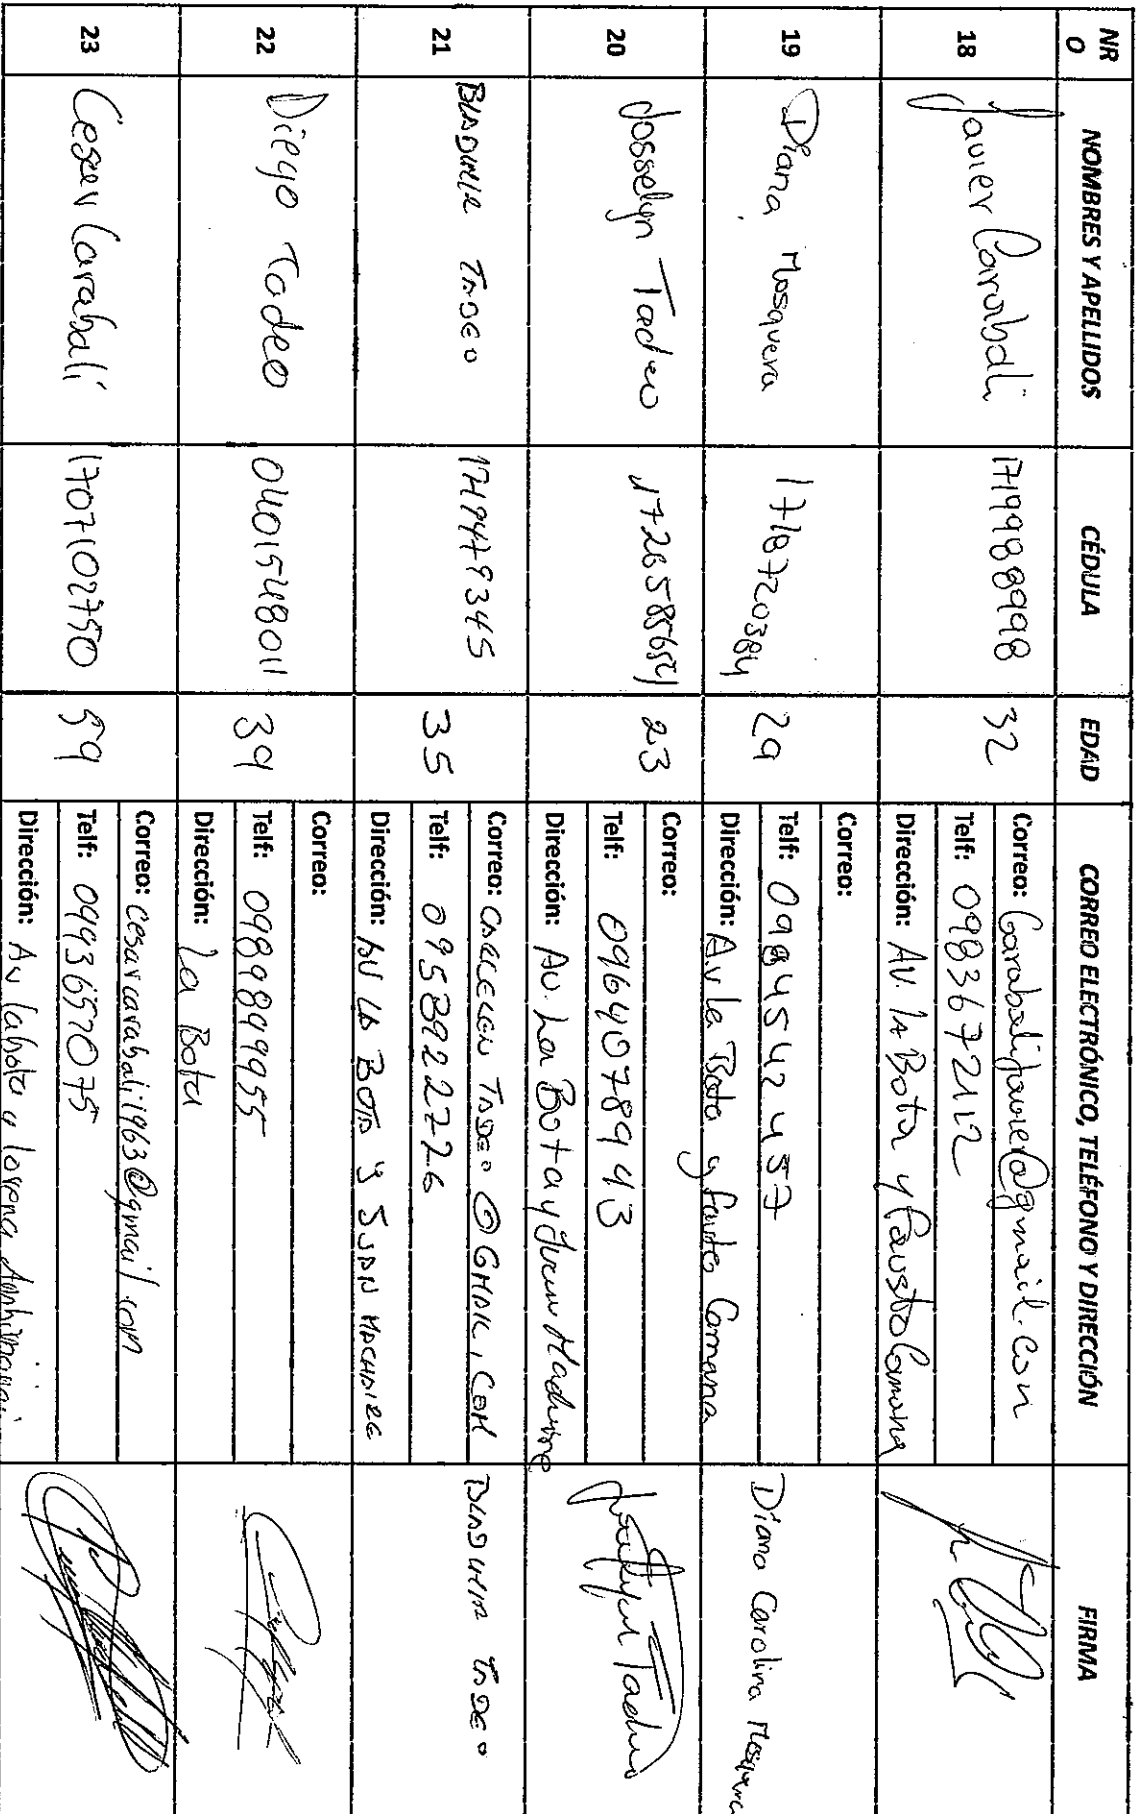 NR
O
NOMBRES Y APELLIDOS
CÉDULA
EDAD
CORREO ELECTRÓNICO, TELÉFONO Y DIRECCIÓN
FIRMA
18
Javier Carabali
1719988998
32
Correo: Carabalijavier@gmail.com
Telf: 0983672112
Dirección: AV. la Bota y Fausto Camana
19
Diana Mosquera
1718720384
29
Correo:
Telf: 0984542457
Dirección: Av la Bota y fausto Camana
Diana Carolina Mosquera
20
Josselyn Tadeo
23
Correo:
Telf: 0964078943
Dirección: Av. La Bota y Juan
Josselyn Tadeo
21
BLADIMIR TADEO
35
Correo: TADEO @ GMAIL, COM
Telf: 0958922226
Dirección: AV LA BOTA y JUAN
BLADIMIR TADEO
22
Diego Tadeo
0401548011
39
Correo:
Telf: 0989899955
Dirección: La Bota
23
Cesar Carabalí
1707102750
59
Correo: cesarcarabali1963@gmail.com
Telf: 0993657075
Dirección: Av la bota y lorena